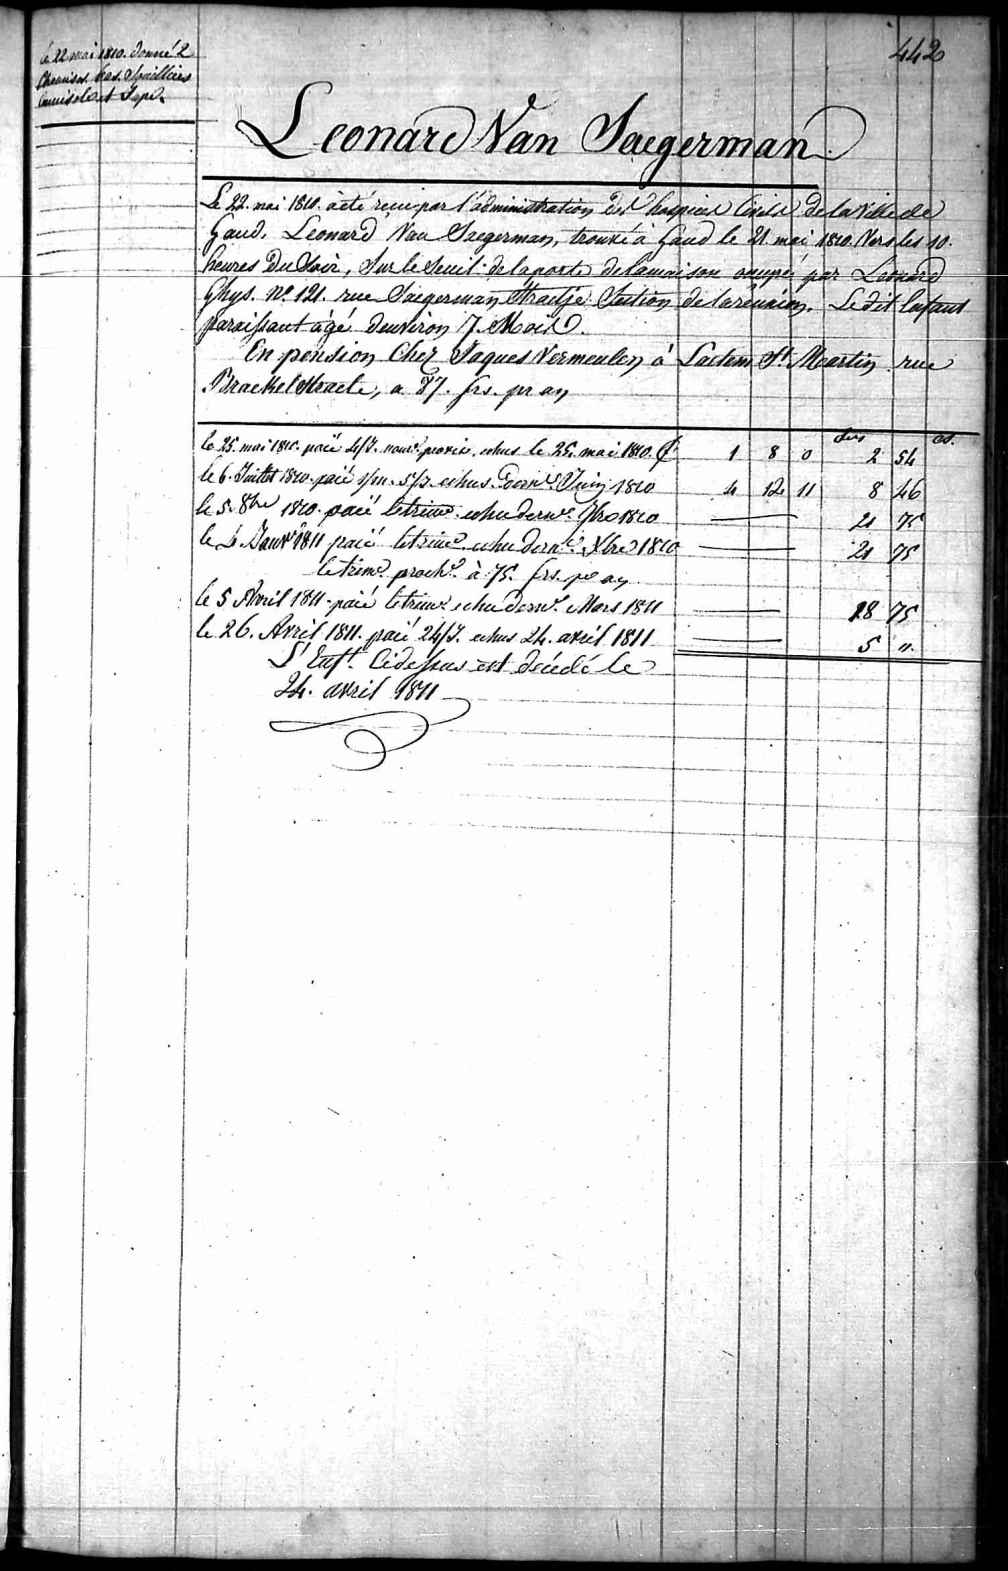 442
le 22 mai 1810. donné 2
Chemises. bas. Souilliers
Camisole et Jupe.
Leonard Van Saegerman
Le 22. mai 1810. a été recu par l'administration des hospices Civils de la Ville de
Gand. Leonard Van Saegerman, trouvé à Gand le 21 mai 1810. Vers les 10.
heures Du Soir, Sur le Seuil de la porte de la maison occupée par Léonard
Ghys. No. 121. rue Saegerman Straetje Section de la réunion. Le dit Enfant
paraissant agé d'environ 7. Mois.
En pension Chez Jaques Vermeulen à Laethem St. Martin rue
Braekel Straete, a 87. frs. pr an
frs cs.
le 25. mai 1810. paié 4/J. echus le 25. mai 1810. 1 8 0 2 54
le 6. Juillet 1810. paié 1/m. 5/J. echus dernr. Juin 1810 4 12 11 8 46
le 5. 8bre 1810. paié le trimr. echu dernr. 7bre 1810 21 75
le 4 Janvr 1811 paié le trimr. echu dernr. Xbre 1810 21 75
le trimr. prochr. à 75. frs. pr an
le 5 Avril 1811. paié le trimr. echu dernr. Mars 1811 18 75
le 26. Avril 1811. paié 24/J. echus 24. avril 1811 5 "
L'Enft. Cidessus est decédé le
24. avril 1811